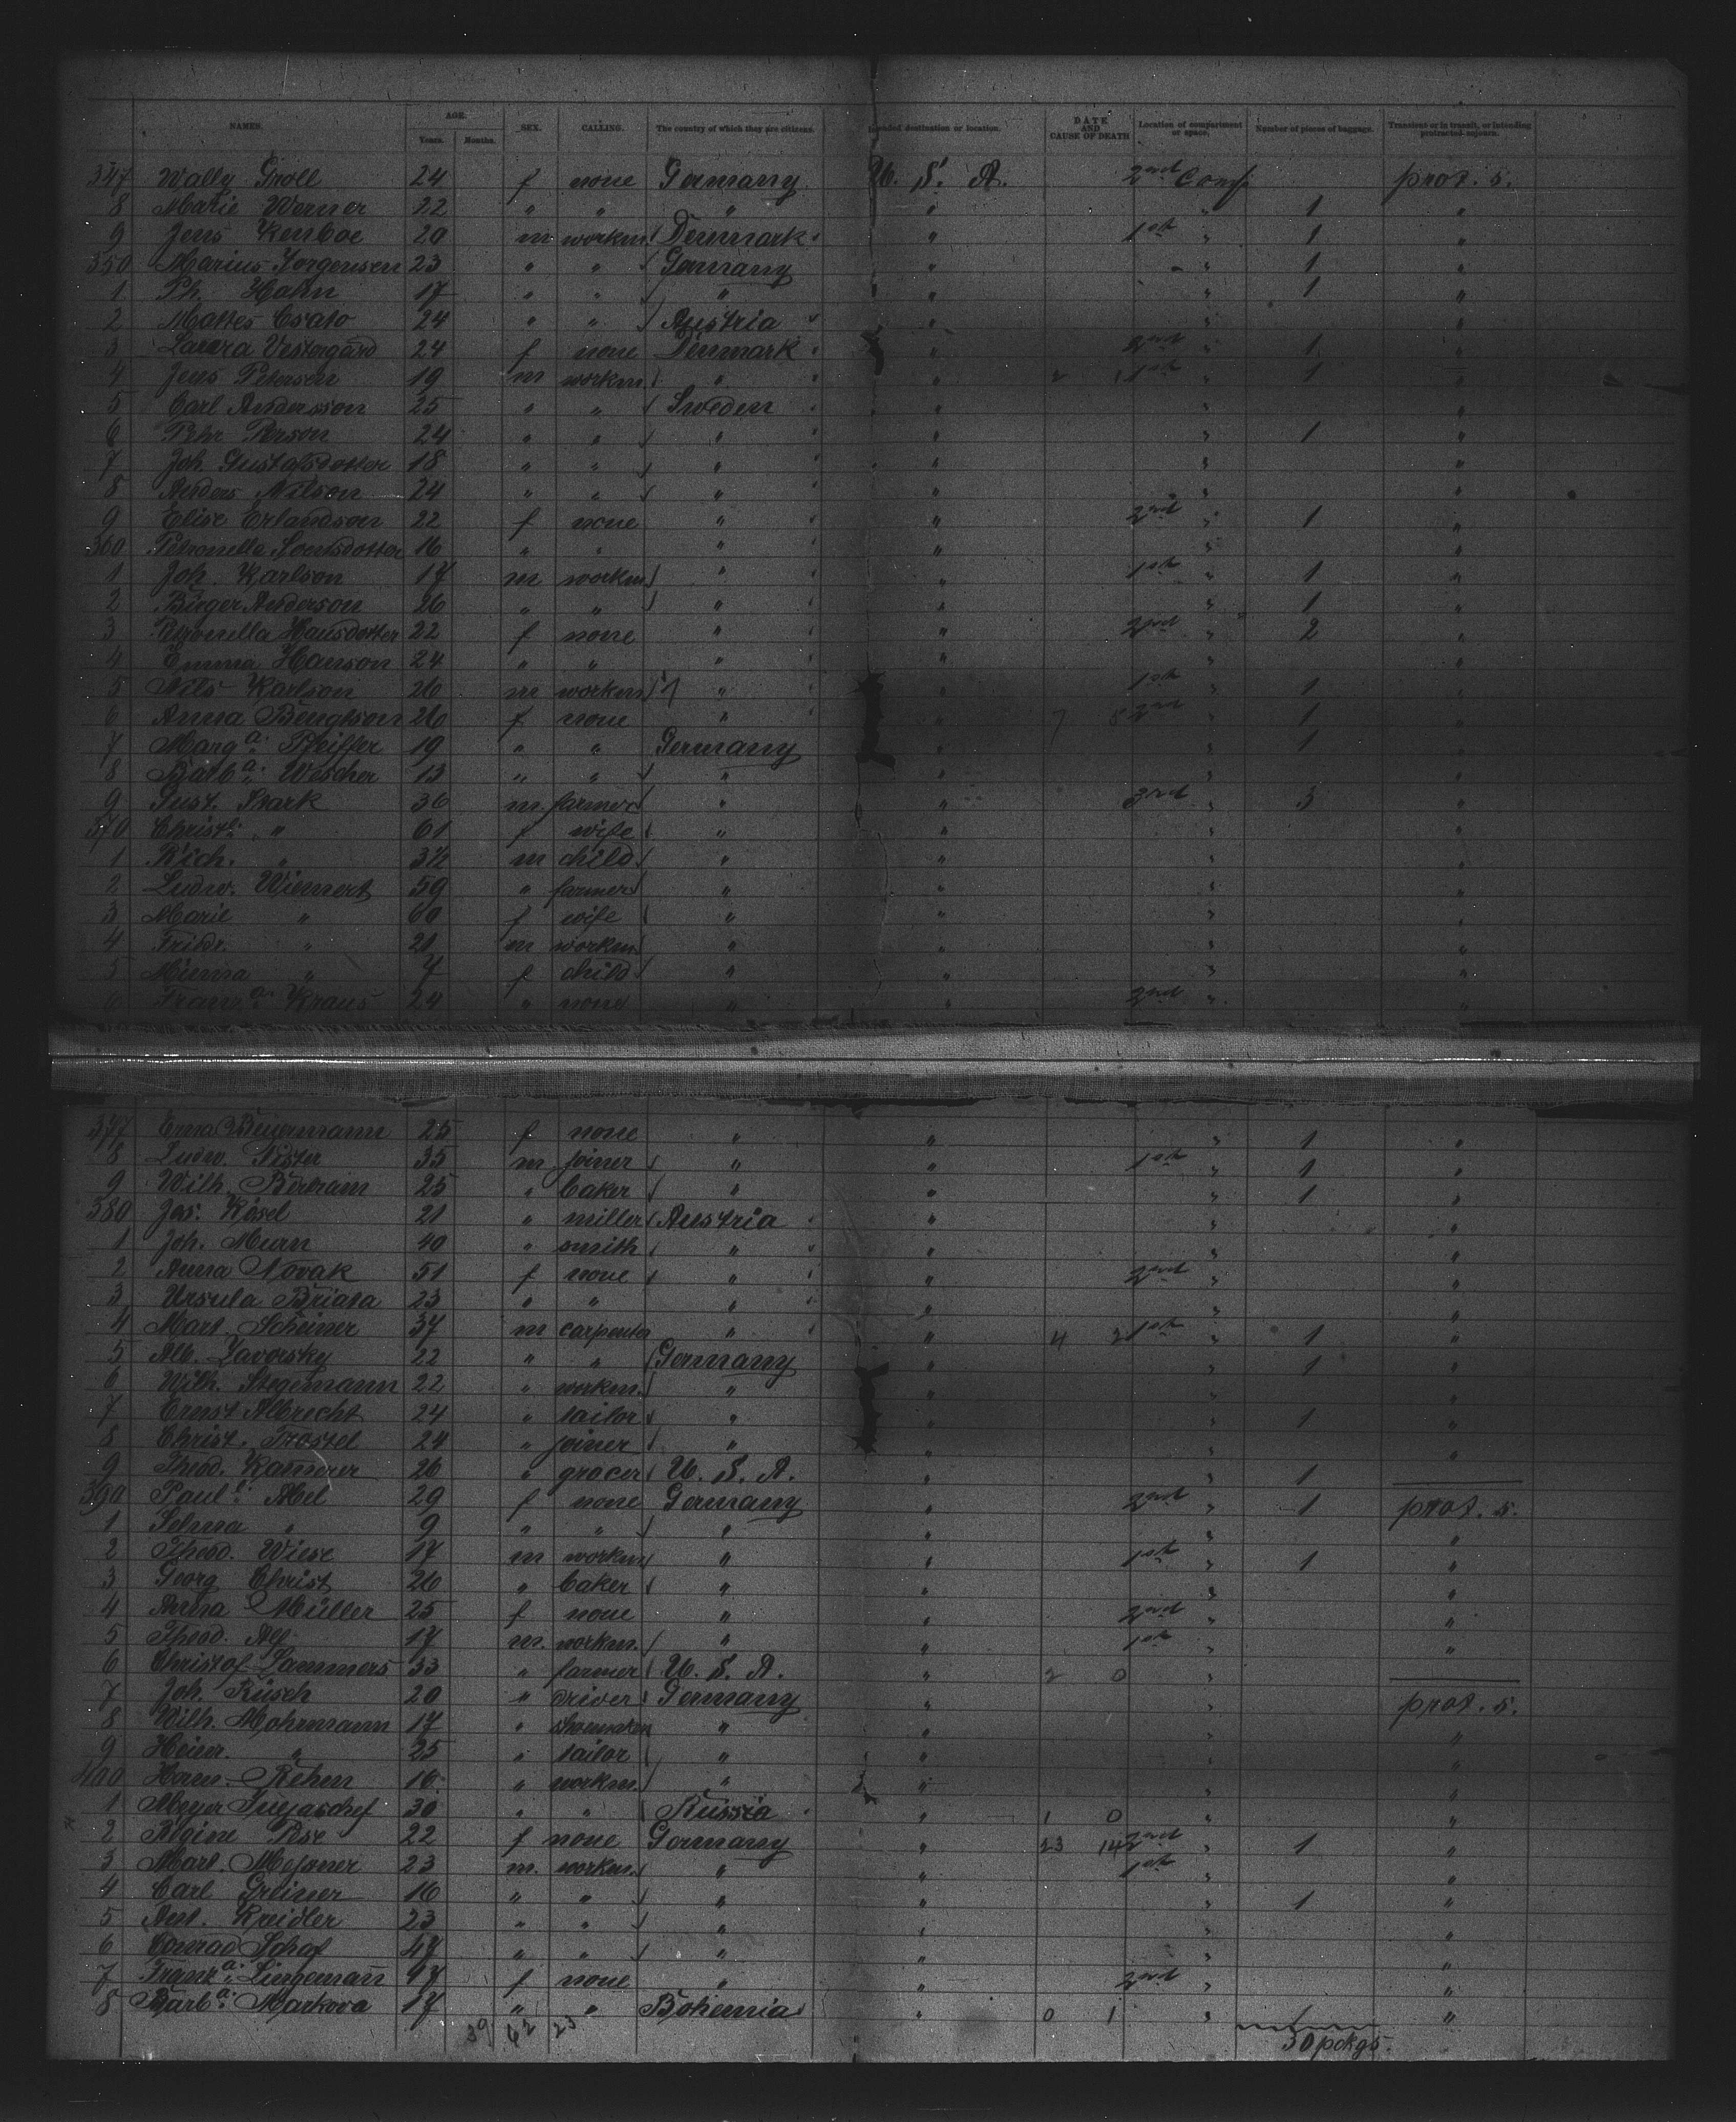 NAMES. AGE. SEX. CALLING. The country of which they are citizens. Intended destination or location. DATE AND CAUSE OF DEATH Location of compartment or space. Number of pieces of baggage. Transient or in transit, or intending protracted sojourn.
Years. Months.
347 Wally Groll 24 f none Germany U. S. A. 2nd Comp prot. s.
8 Marie Werner 22 " " " " " 1 "
9 Jens 20 m workm Denmark " 1st " 1 "
350 Marius Jorgensen 23 " " Germany " " 1 "
1 Ph. Hahn 17 " " " " " 1 "
2 Mattes Csato 24 " " Austria " " "
3 Laura Vestergård 24 f none Denmark " 2nd " 1 "
4 Jens Petersen 19 m workm " " 2 1st " 1 "
5 Carl Andersson 25 " " Sweden " " "
6 Pehr Person 24 " " " " " 1 "
7 Joh. Gustafsdotter 18 " " " " " "
8 Anders Nilson 24 " " " " " "
9 Elise Erlandson 22 f none " " 2nd " 1 "
360 Petronella Svensdotter 16 " " " " " "
1 Joh. Karlson 17 m workm " " 1st " 1 "
2 Birger Anderson 26 " " " " " 1 "
3 Petronella Hansdotter 22 f none " " 2nd " 2 "
4 Emma Hanson 24 " " " " " "
5 Nils Karlson 26 m workm " " 1st " 1 "
6 Anna Bengtson 26 f none " " 7 8 2nd " 1 "
7 Marga. Pfeiffer 19 " " Germany " " 1 "
8 Barba. Wescher 13 " " " " " "
9 Gust. Stark 36 m. farmer " " 3rd " 3 "
370 Christ. " 61 f wife " " " "
1 Rich. " 3½ m child " " " "
2 Ludw. Wiemert 59 " farmer " " " "
3 Marie " 60 f wife " " " "
4 Friedr. " 21 m workm " " " "
5 Minna " 7 f child " " " "
6 Franza. Kraus 24 " none " 2nd " "
377 Erna Beuermann 25 f none " " " 1 "
8 Ludw. 35 m joiner " " 1st " 1 "
9 Wilh. Bertram 25 " baker " " " 1 "
380 Jos. Kösel 21 " miller Austria " " "
1 Joh. Murn 40 " smith " " " "
2 Anna Novak 51 f none " " 2nd " "
3 Ursula Briata 23 " " " " " "
4 Mart. Scheiner 37 m carpenter " " 4 2 1st " 1 "
5 Alb. Zavorsky 22 " " Germany " " 1 "
6 Wilh. Stegemann 22 " workm. " " " "
7 Ernst Albrecht 24 " tailor " " " 1 "
8 Christ. Trostel 24 " joiner " " " "
9 Theod. Kamerer 26 " grocer U. S. A. " " 1
390 Paule. Abel 29 f none Germany " 2nd " 1 prot. s.
1 Selma " 9 " " " " " "
2 Theod. Wiese 17 m workm " " 1st " 1 "
3 Georg Christ 26 " baker " " " "
4 Anna Müller 25 f none " " 2nd " "
5 Theod. Alf 17 m. workm. " " 1st " "
6 Christof Lammers 33 " farmer U. S. A. " 2 0 "
7 Joh. Rüsch 20 " driver Germany " " prot. s.
8 Wilh. Mohrmann 17 " shoemaker " " " "
9 Heinr. " 25 " tailor " " " "
400 Herm. Rehm 16 " workm. " " " "
1 Meyer 30 " " Russia " 1 0 " "
2 Regine 22 f none Germany " 23 14 2nd " 1 "
3 Marl. 23 m. workm. " " 1st " "
4 Carl Greiner 16 " " " " " 1 "
5 Ant. Kreidler 23 " " " " " "
6 Conrad Schaf 47 " " " " " "
7 Franza. Lingemann 47 f none " " 2nd " "
8 Barba. Markova 17 " " Bohemia " 0 1 " 1 "
39 62 23
30 pckgs.